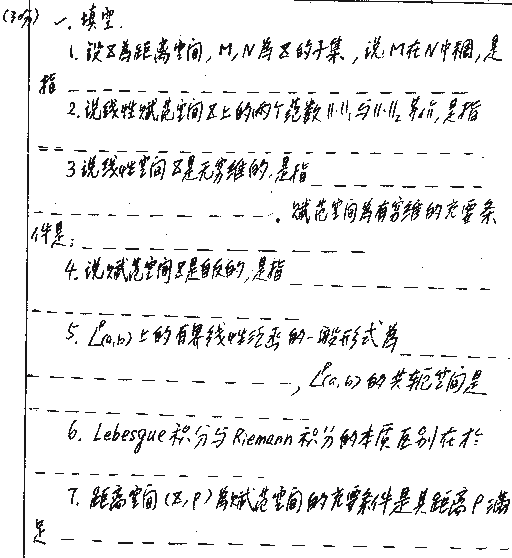 (30分) 一. 填空.
1. 设X为距离空间, M, N为X的子集, 说M在N中稠, 是
指
2. 说线性赋范空间X上的两个范数 ||·||₁ 与 ||·||₂ 等价, 是指
3 说线性空间X是无穷维的, 是指
. 赋范空间为有穷维的充要条
件是:
4. 说赋范空间X是自反的, 是指
5. Lᵖ(a,b) 上的有界线性泛函的一般形式为
, Lᵖ(a,b) 的共轭空间是
6. Lebesgue积分与Riemann积分的本质区别在于
7. 距离空间 (X, ρ) 为赋范空间的充要条件是其距离ρ满
足